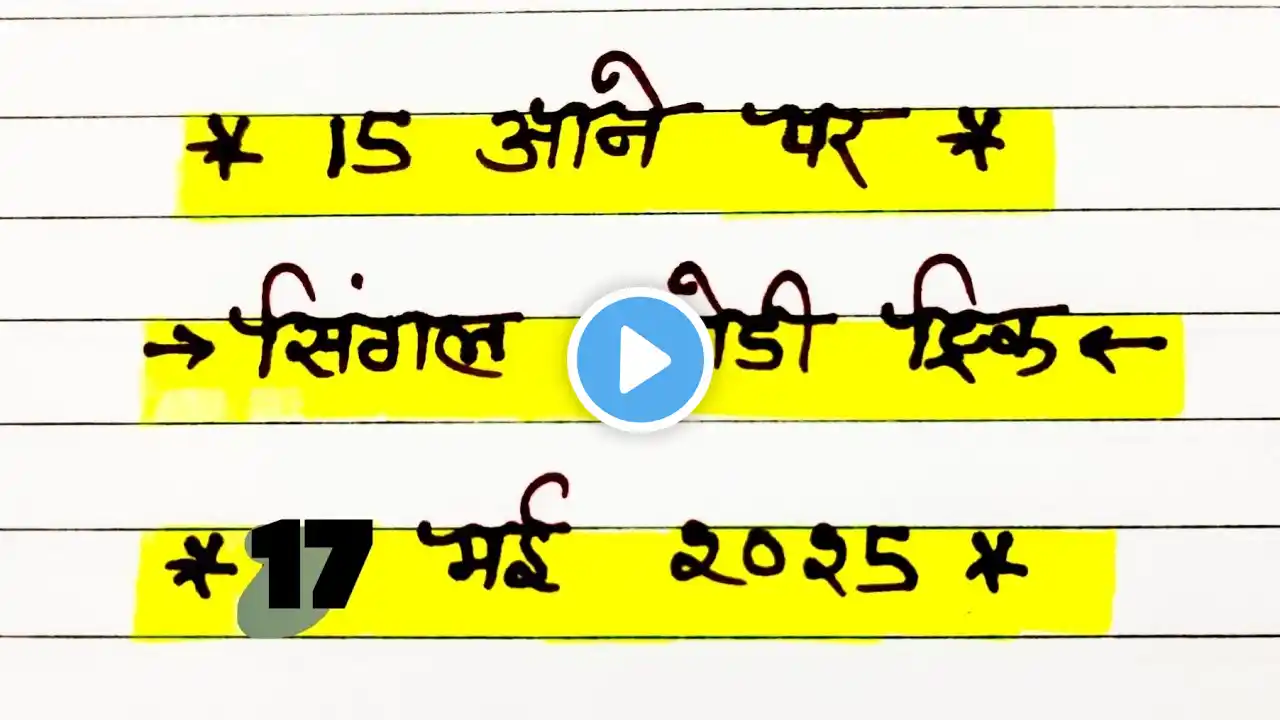 * 15 आने पर *
→ सिंगल ट्रिक ←
* 17 मई २०२5 *